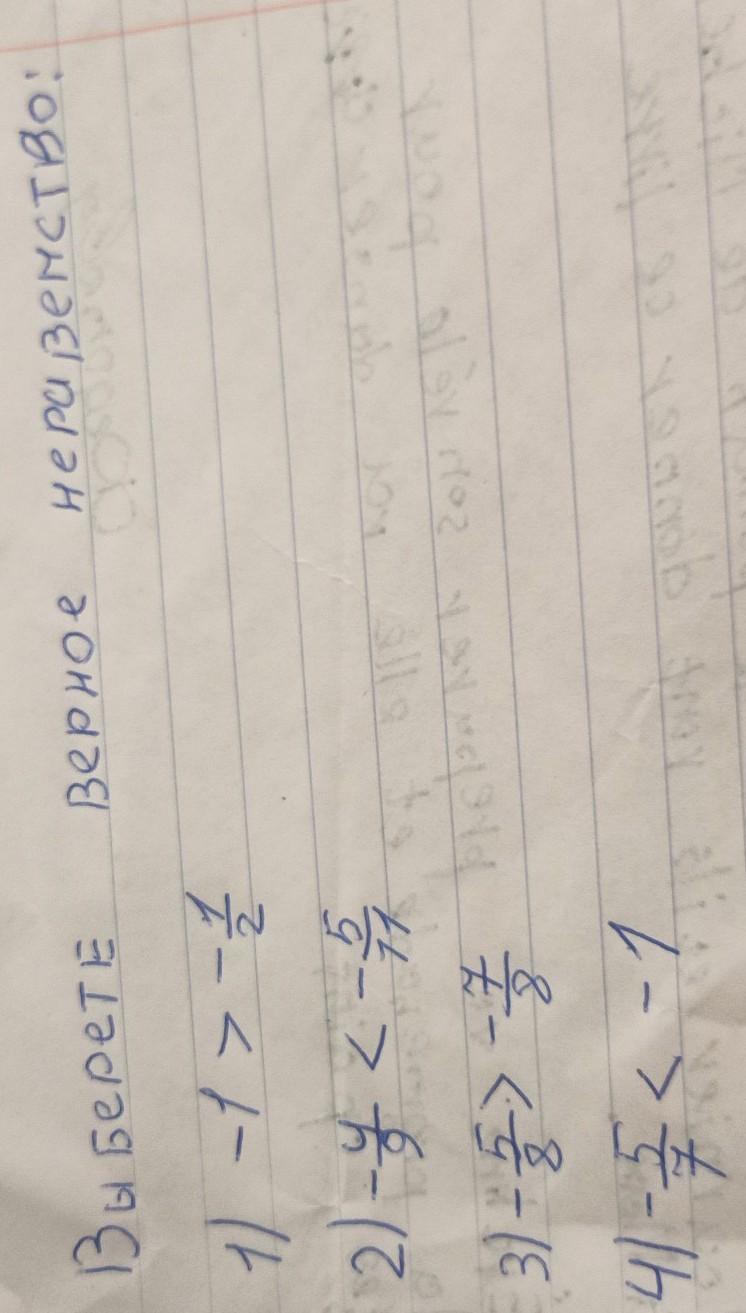 Выберете верное неравенство:
1) -1 > -1/2
2) -4/9 < -5/11
3) -5/8 > -7/8
4) -5/7 < -1